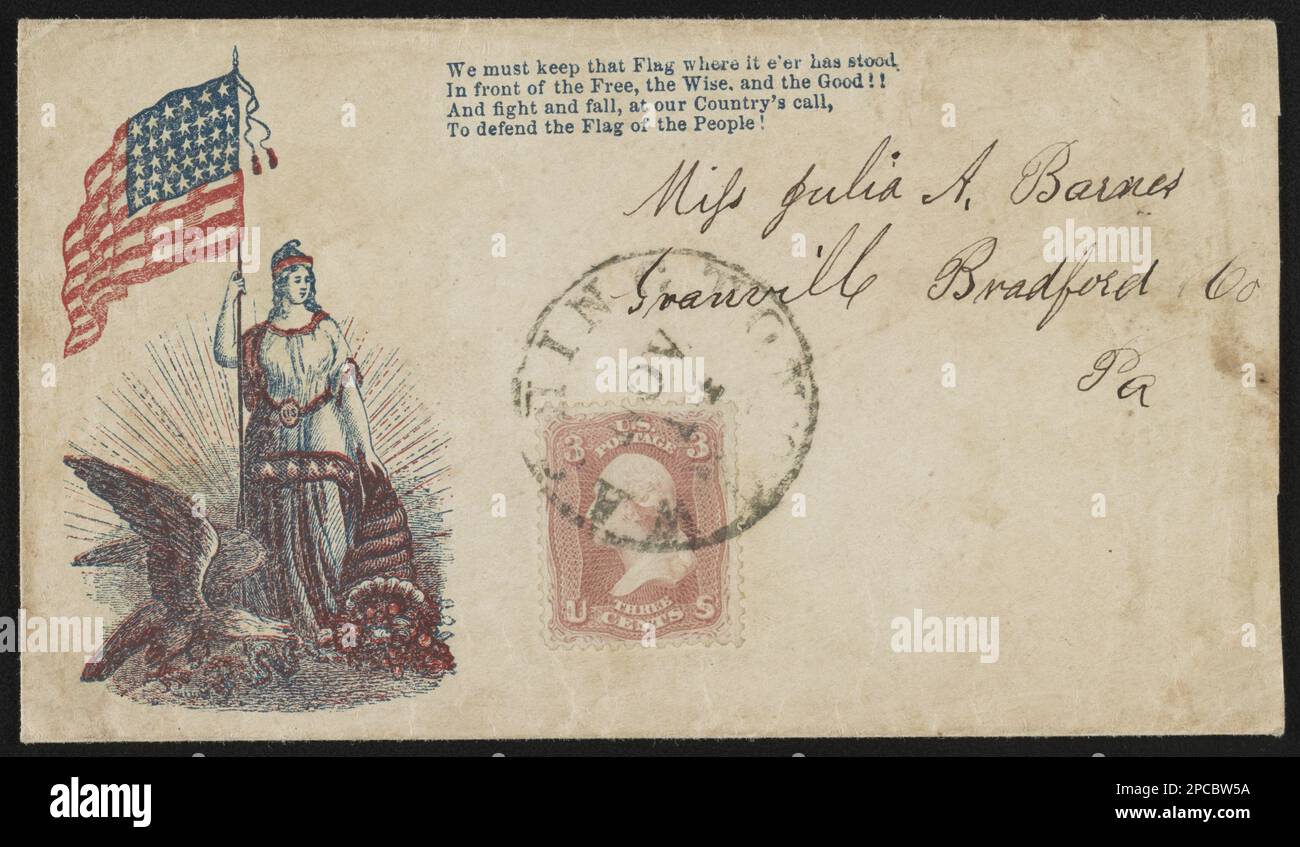 We must keep that Flag where it e'er has stood.
In front of the Free, the Wise, and the Good!!
And fight and fall, at our Country's call,
To defend the Flag of the People!
Miss Julia A. Barnes
Granvill Bradford Co
Pa
WASHINGTON
NOV
US
3 U.S. POSTAGE 3
U THREE CENTS S
alamy
alamy
Image ID: 2PCBW5A
www.alamy.com